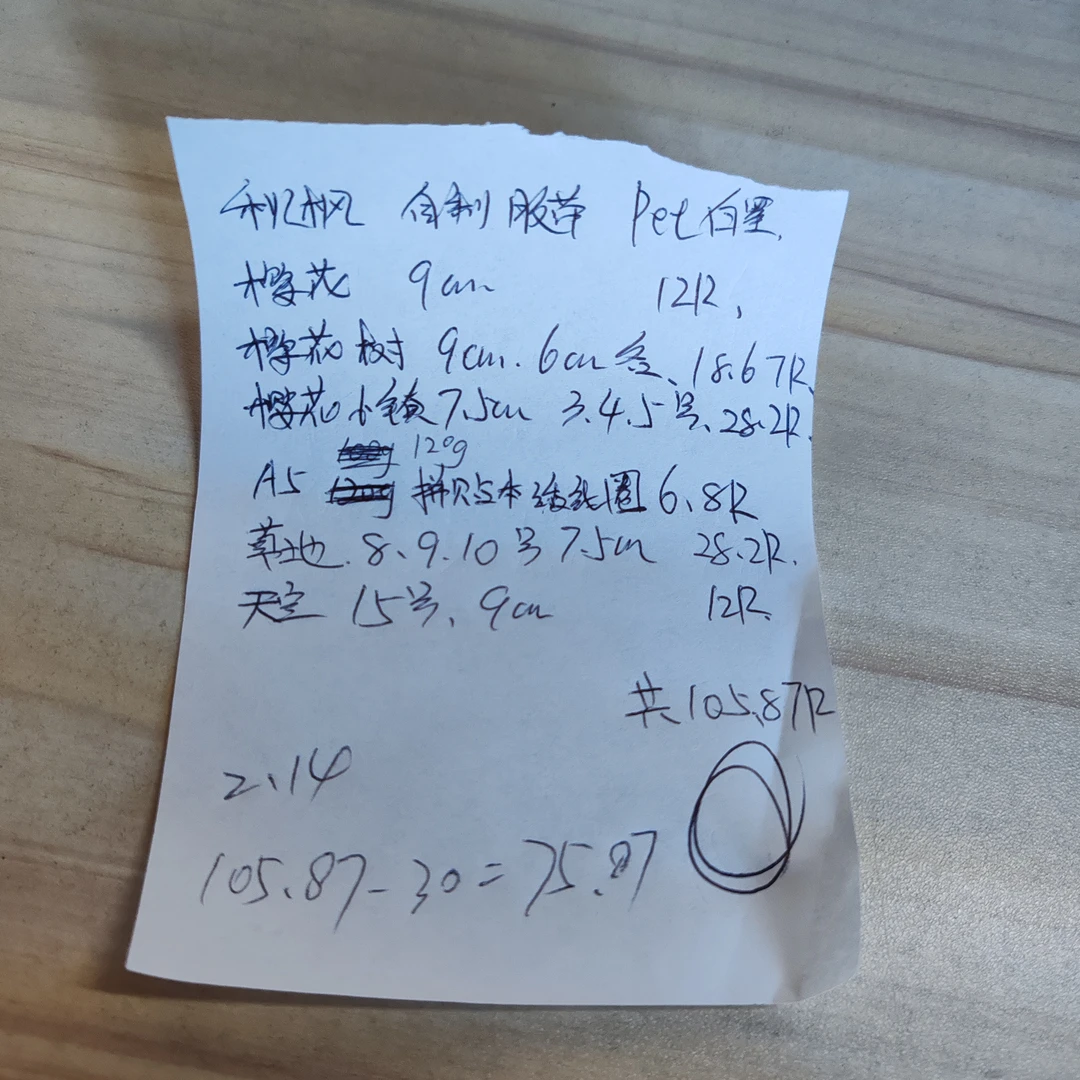 自制胶带 Pet白墨
樱花 9cm 12R、
樱花树 9cm.6cm 各、18.67R、
樱花小镇7.5cm 3.4.5号、28.2R.
120g
A5 拼贴本 线圈 6.8R
草地.8、9.10号7.5cm 28.2R.
天空 15号、9cm 12R.
共105.87R
2.14
105.87-30=75.87